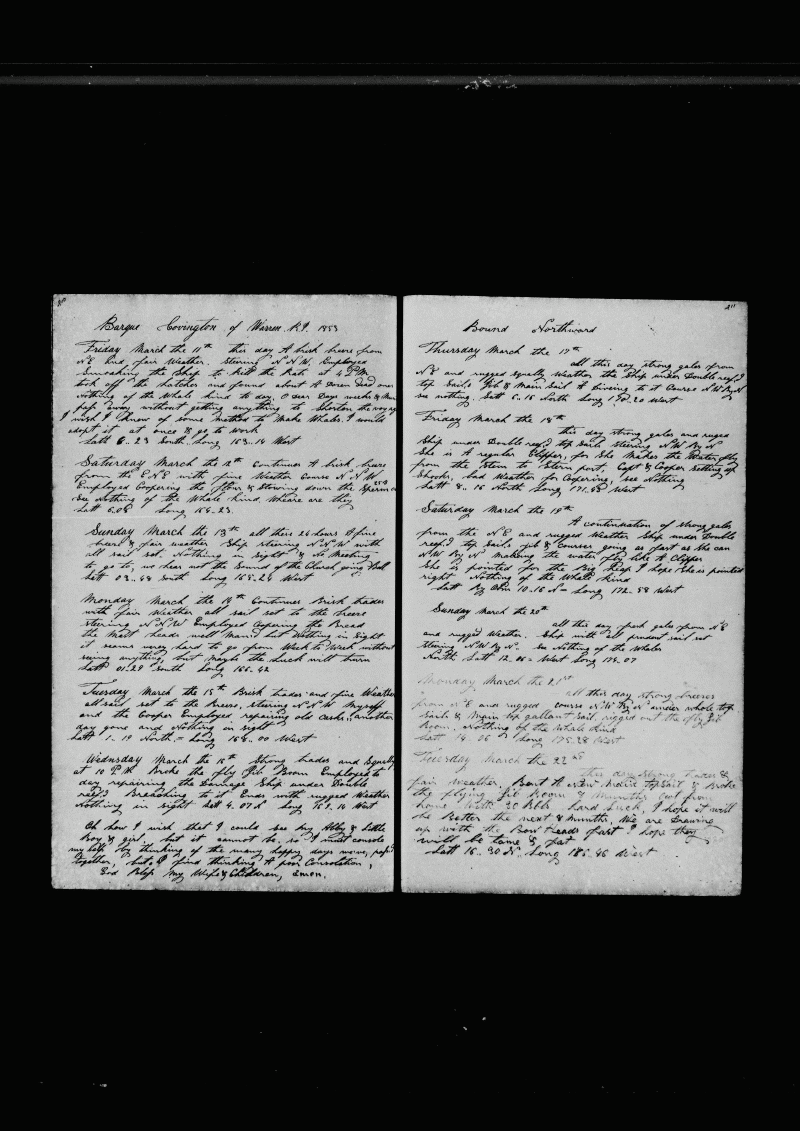 Barque Covington of Warren R.I. 1853
Friday March the 11th this day A brisk breeze from
N E End fair Weather. Stering N N W. Employed
Smoaking the Ship to kill the Rats at 4 P.M.
took off the hatches and found about A Dozen Dead ones
Nothing of the Whale kind to day. O dear Days weeks &
pass away without getting anything to Shorten the voyage
I wish I knew of some method to Make Whales. I would
adopt it at once & go to Work
Latt 6.. 23 South.. Long 163.. 14 West
Saturday March the 12th Continues A brisk breeze
from the E N E with fine Weather Course N N W
Employed Coopering the flour & Stowing down the Sperm
See Nothing of the Whale kind. Wheare are they
Latt 5.08 Long 164.. 23.
Sunday March the 13th all this 24 hours A fine
breeze & fair weather Ship steering N N W with
all sail set. Nothing in sight & No Meeting
to go to, we hear not the Sound of the Church going Bell
Latt 03.. 48 South Long 165.. 24 West
Monday March the 14th Continues Brisk trades
with fair Weather all sail set to the breeze
steering N N W Employed Coopering the Bread
the Mast heads well Mand but Nothing in Sight
it seems very hard to go from Week to Week without
seeing anything, but maybe the Luck will turn
Latt 01.. 29 South Long 166.. 42
Tuesday March the 15th Brisk trades and fine Weather
all sail set to the Breeze, stering N N W Myself
and the Cooper Employed repairing old Casks, another
day gone and Nothing in sight
Latt 1.. 19 North = Long 168.. 00 West
Wedsday March the 16th strong trades and Squally
at 10 P.M. Broke the fly Jib Boom Employed to
day repairing the Damage Ship under Double
reefs Breaching to it Ends with rugged Weather
Nothing in sight Latt 4.07 N Long 169.. 16 West
Oh how I wish that I could see my Abby & little
Boy & girl, but it cannot be, so I must console
my self by thinking of the many happy days we've, pass'd
together, but I find thinking A poor Consolation,
God Bless my Wife & Children, Amen.
Bound Northward
Thursday March the 17th
all this day strong gales from
N E and rugged Squally Weather the Ship under Double reef'd
top Sails Jib & Main Sail A Driving to it Course N W By N
see nothing. Latt 6.. 15 North Long 170.. 20 West
Friday March the 18th
this day strong gales and ruged
Ship under Double reef'd top Sails steering N W By N
She is A regular Clipper, for She Makes the Water fly
from the Stem to Stern post, Capt & Cooper setting up
Shooks, bad Weather for Coopering, see Nothing
Latt 8.. 16 North Long 171.. 48 West
Saturday March the 19th
A continuation of strong gales
from the N E and rugged Weather Ship under Double
reef'd top Sails, jib & Courses going as fast as She can
N W By N making the water fly like A Clipper
She is pointed for the Big Heap I hope She is pointed
right Nothing of the Whale kind
Latt By Obs 10.16 N = Long 172.. 58 West
Sunday March the 20th
all this day fresh gales from N E
and rugged Weather. Ship with all prudent sail set
stering N W By N.. See Nothing of the Whales
North Latt 12.. 05 = West Long 174.. 07
Monday March the 21st
all this day strong breezes
from N E and rugged course N W By N under whole top
Sails & Main top gallant Sail, rigged out the fly Jib
Boom. Nothing of the Whale kind
Latt 14 06 N Long 175.. 28 West
Tuesday March the 22nd
this day strong trades &
fair Weather. Bent A New Main topsail & Broke
the flying Jib Boom 7 Munths Out from
home With 20 Bbls hard luck, I hope it will
be Better the next 8 Munths, We are Drawing
up with the Bow Heads fast I hope they
will be tame & fat
Latt 16.. 30 N.. Long 176.. 46 West